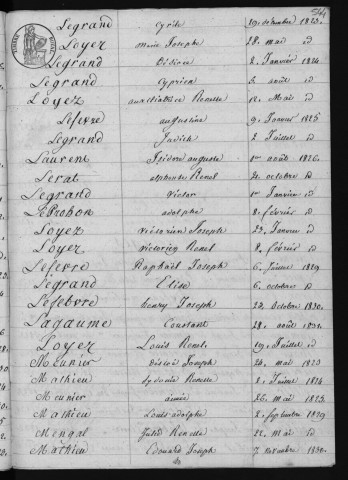 Legrand Cyrile 19 décembre 1823.
Loyez Marie Josephe 28 mai id
Legrand Désirée 2 Janvier 1824
Legrand Cyprien 3 août id
Loyez auxiliatrice Renelle 12 Mai id
Lefevre augustine 9 Janvier 1825
Legrand Judick 2 Juillet id
Laurent Isidore auguste 1er août 1826.
Lerat alphonse Renel 4 octobre id
Legrand Victor 1er Janvier id
LeProhon adolphe 8 février id
Loyez victorien Joseph 23 Janvier id
Loyez Victorien Renel 8 février id
Lefevre Raphaël Joseph 6 1829
Legrand Elise 6 octobre id
Lefebvre henry Joseph 23 Octobre 1830.
Lagaume Constant 28 août 1831.
Loyez Louis Renel 19 Juillet id
Meunier désiré Joseph 24 mai 1823
Mathieu Renelle 2 1824
Meunier aimée 26 mai 1825.
Mathieu Louis adolphe 2 septembre 1829
Mengal Julie Renelle 22 mai id
Mathieu Edouard Joseph 7 novembre 1830.